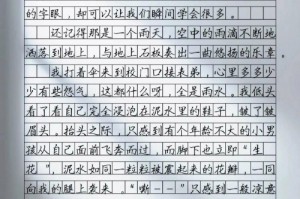 的字眼，却可以让我们瞬间学会很多。
还记得那是一个雨天，空中的雨滴不断地
洒落到地上，与地上石板奏出一曲悠扬的乐章。
我打着伞来到校门口接表弟，心里多多少
少有些怨气，这都什么呀，全是雨水。低头
看了看自己完全浸泡在泥水里的鞋子，皱了皱
眉头。抬头之际，只感到有个年龄不大的小男
孩从自己面前飞奔而过，而脚下也立即“生
花”，泥水如同一粒粒被震起来的花瓣，一同
向我的腿上袭来。“嘶--”只感到一股凉意